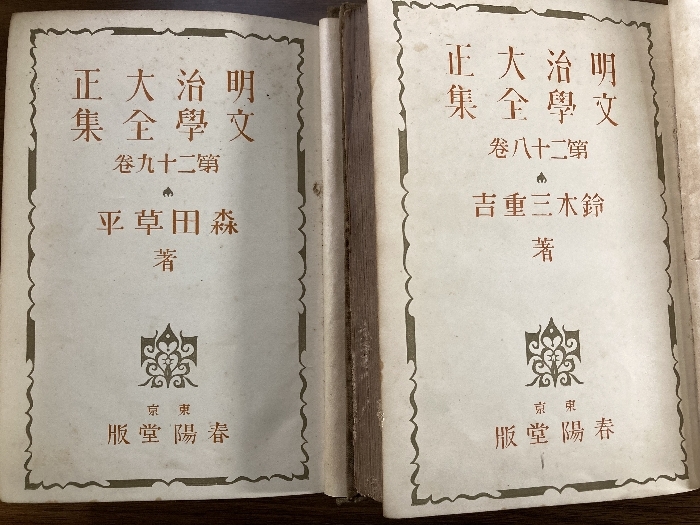 明治大正
文學全集
第二十八卷
鈴木三重吉
著
東京
春陽堂版
明治大正
文學全集
第二十九卷
森田草平
著
東京
春陽堂版